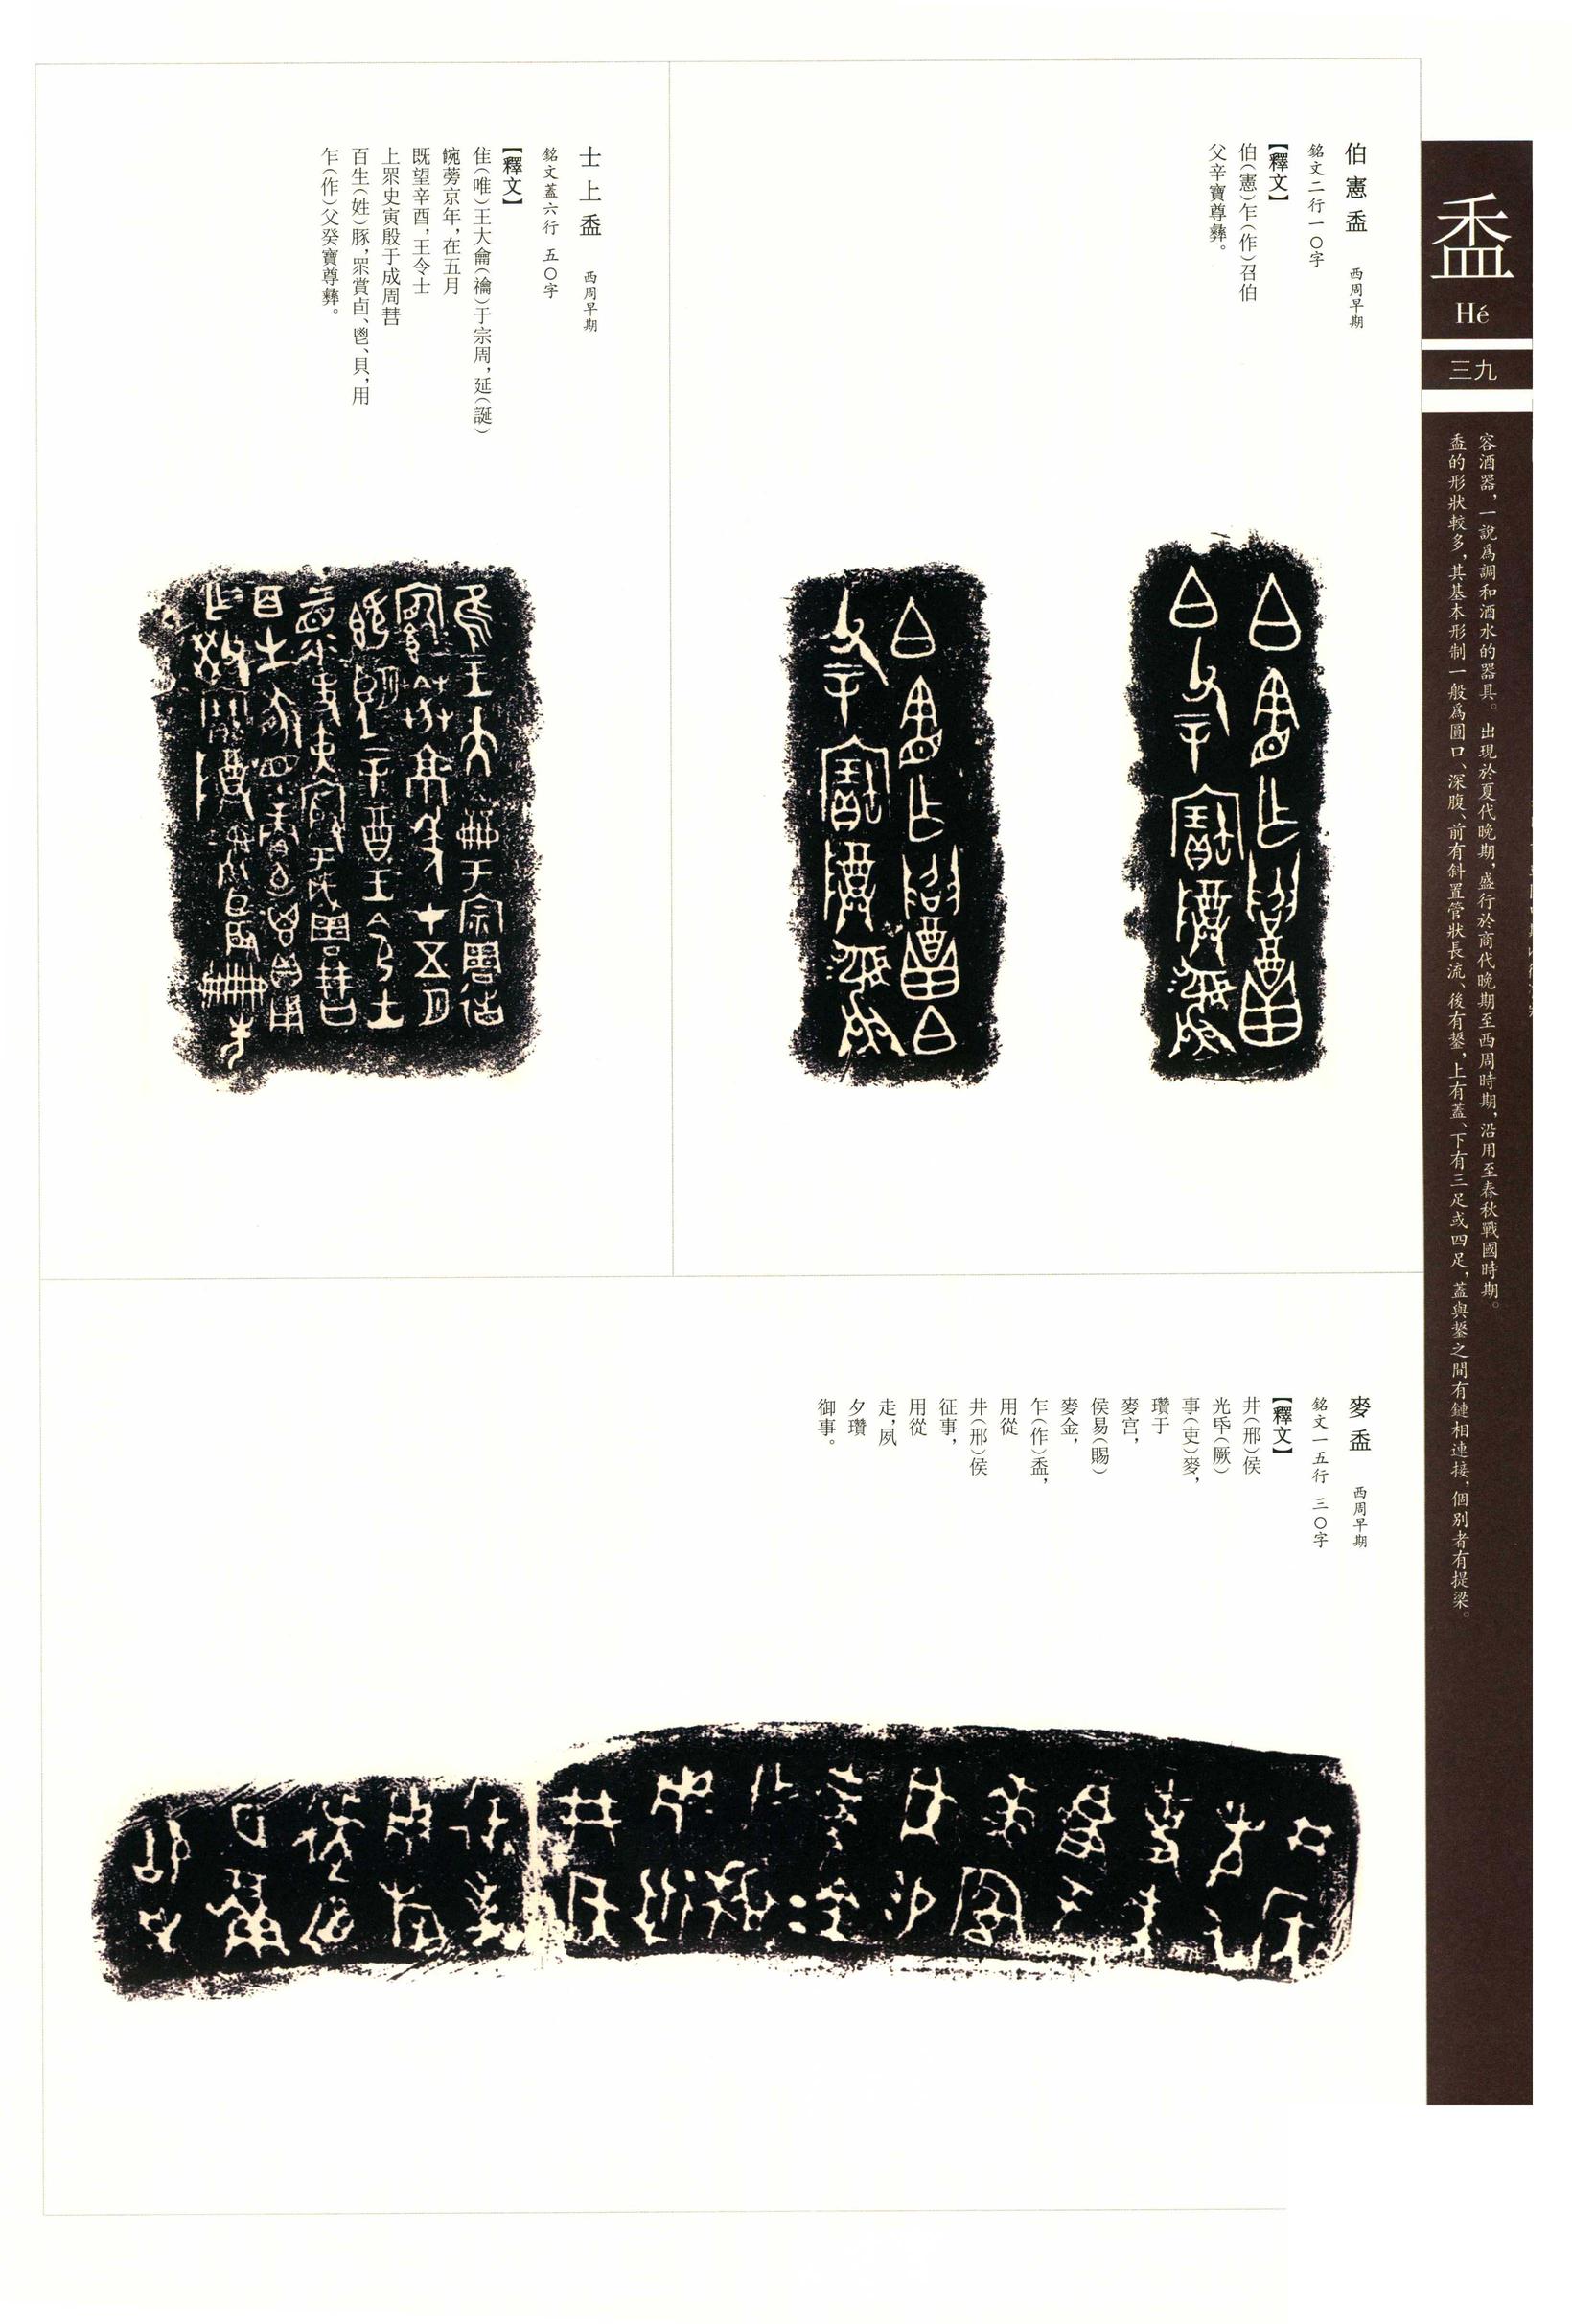 盉
Hé
三九
容酒器，一説爲調和酒水的器具。出現於夏代晚期，盛行於商代晚期至西周時期，沿用至春秋戰國時期。
盉的形狀較多，其基本形制一般爲圓口、深腹、前有斜置管狀長流、後有鋬，上有蓋、下有三足或四足，蓋與鋬之間有鏈相連接，個別者有提梁。
伯憲盉 西周早期
銘文二行一〇字
【釋文】
伯（憲）乍（作）召伯
父辛寶尊彝。
士上盉 西周早期
銘文蓋六行 五〇字
【釋文】
隹（唯）王大龠（禴）于宗周，延（誕）
䬵蒡京年，在五月
既望辛酉，王令士
上眔史寅殷于成周，
百生（姓）豚，眔賞卣、鬯、貝，用
乍（作）父癸寶尊彝。
麥盉 西周早期
銘文一五行 三〇字
【釋文】
井（邢）侯
光氒（厥）
事（吏）麥，
瓚于
麥宫，
侯易（賜）
麥金，
乍（作）盉，
用從
井（邢）侯
征事，
用從
走，夙
夕瓚
御事。